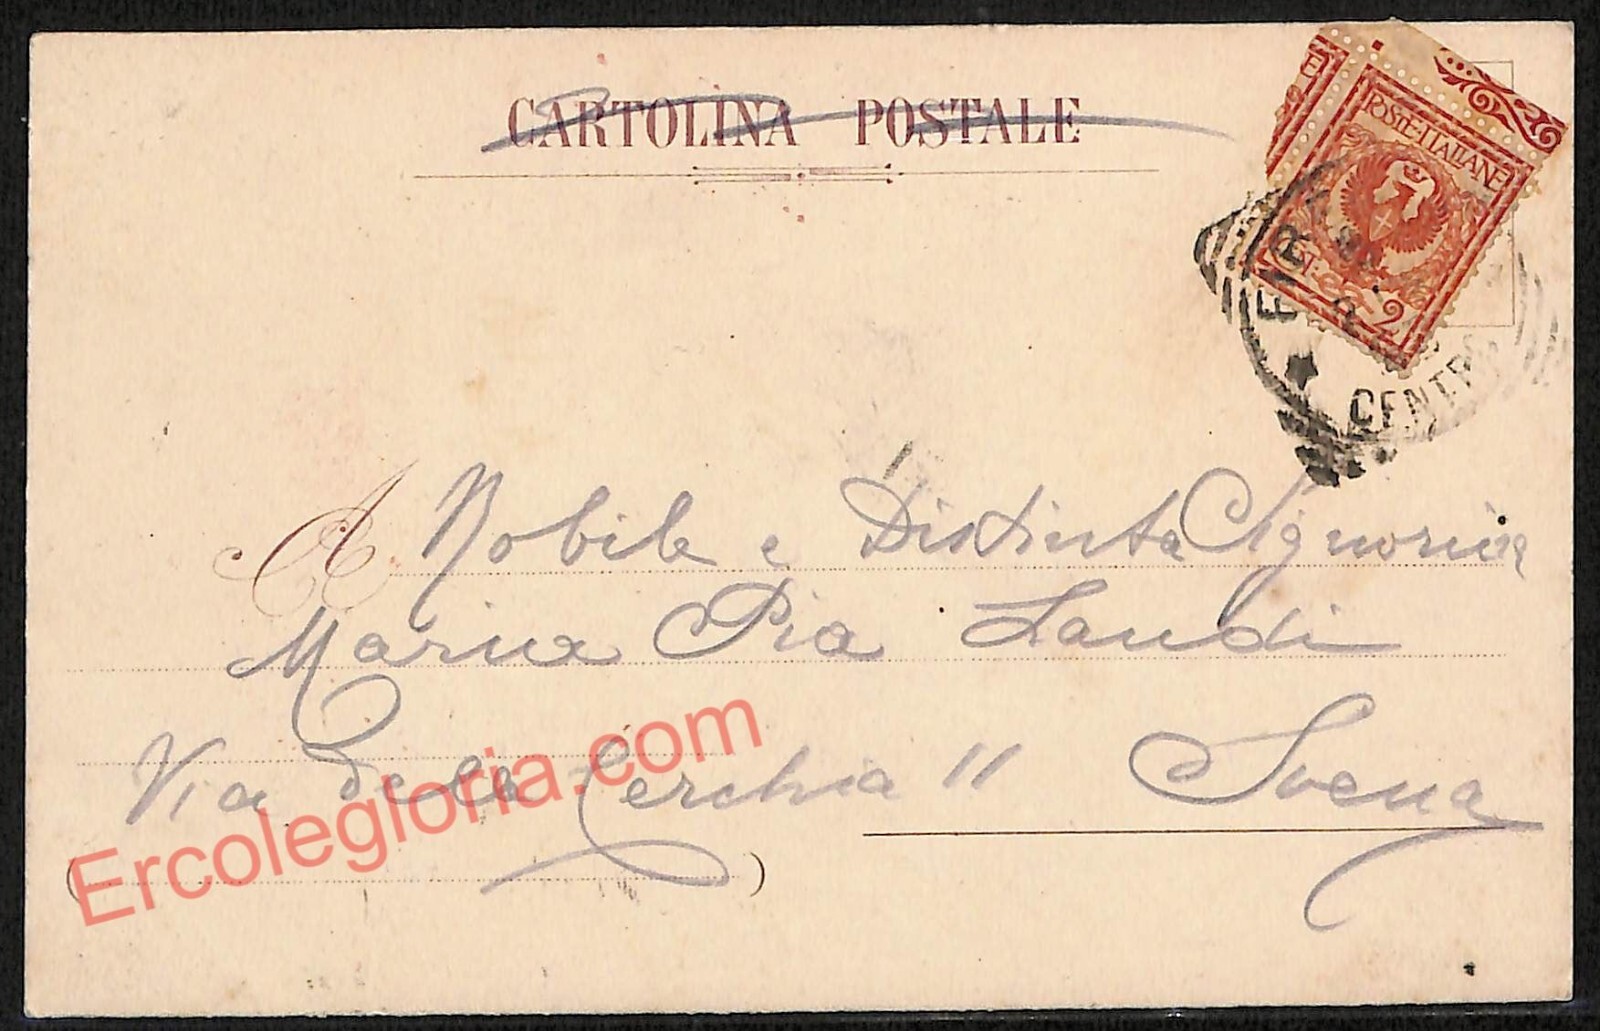 CARTOLINA POSTALE
POSTE ITALIANE
CENT. 2
FIRE
CENTR
A Nobile e Distinta Signorina
Maria Pia Landi
Via delle Cerchia 11 Siena
Ercolegloria.com